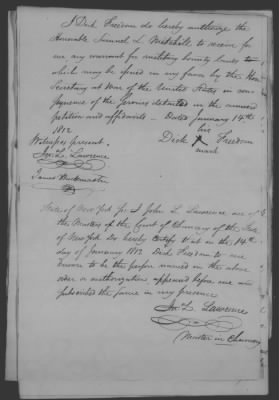 I Dick Freedom do hereby authorize the
Honorable Samuel L. Mitchill to receive for
me any warrant for military bounty lands to
which may be issued in my favor by the Hon
Secretary at War of the United States in con
sequence of the services detailed in the annexed
petition and affidavits. Dated January 14th
1812
his
Witnesses present
Dick X Freedom
mark
Jno. L. Lawrence
James Buckmaster
State of New York Ss. I John L. Lawrence one of
the Masters of the Court of Chancery of the State
of New York do hereby certify that on the 14th
day of January 1812 Dick Freedom to me
known to be the person named in the above
order or authorization appeared before me and
subscribed the same in my presence
Jno. L. Lawrence
Master in Chancery